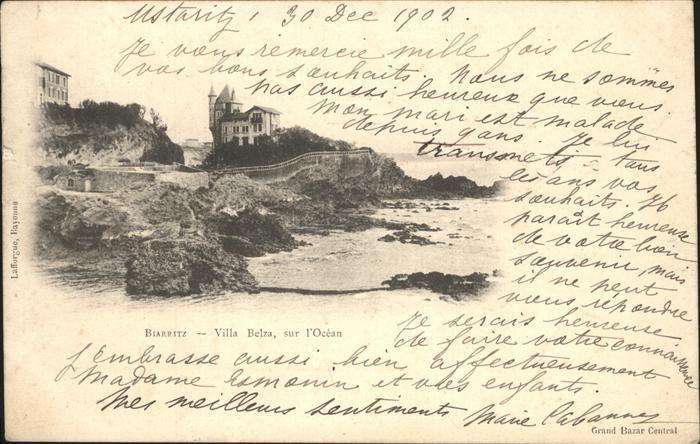 Ustaritz, 30 Dec 1902.
Je vous remercie mille fois de
vos bons souhaits. Nous ne sommes
pas aussi heureux que vous.
Mon mari est malade
depuis 9 ans. Je lui
transmets tous
les ans vos
souhaits. Il
paraît heureux
de votre bon
souvenir, mais
il ne peut
vous répondre
Je serais heureuse
de faire votre connaissance
J'Embrasse aussi bien affectueusement
Madame Esmonin et vos enfants.
Mes meilleurs sentiments Marie Cabannes
Lafforgue, Bayonne
Biarritz — Villa Belza, sur l'Océan
Grand Bazar Central